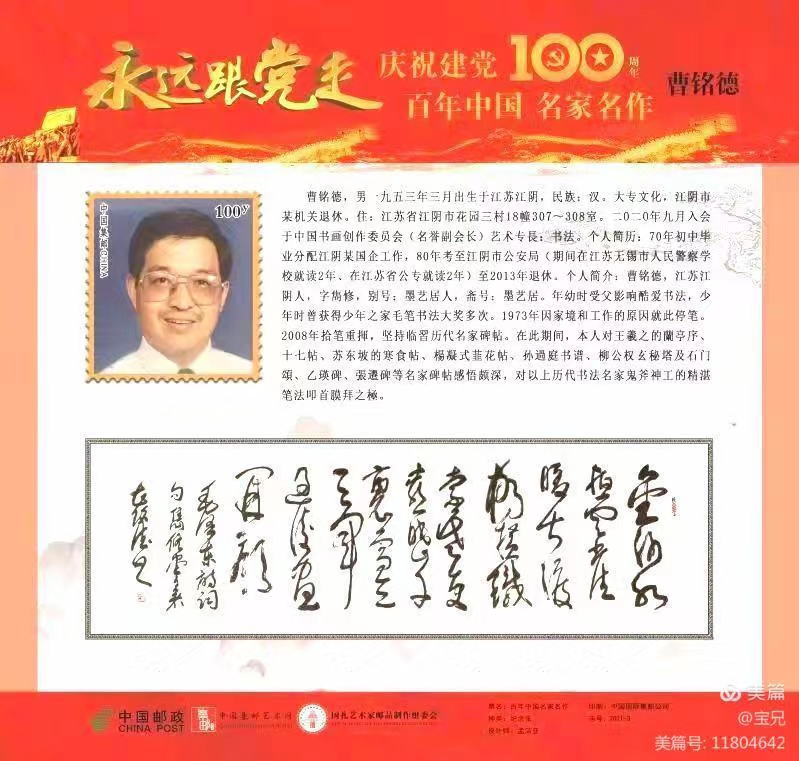 永远跟党走
庆祝建党100周年
百年中国 名家名作
曹铭德
中国集邮CHINA
100y
曹铭德，男一九五三年三月出生于江苏江阴，民族：汉。大专文化，江阴市
某机关退休。住：江苏省江阴市花园三村18幢307～308室。二〇二〇年九月入会
于中国书画创作委员会（名誉副会长）艺术专長：书法。个人简历：70年初中毕
业分配江阴某国企工作，80年考至江阴市公安局（期间在江苏无锡市人民警察学
校就读2年、在江苏省公专就读2年）至2013年退休。个人简介：曹铭德，江苏江
阴人，字雋修，别号；墨艺居人，斋号：墨艺居。年幼时受父影响酷爱书法，少
年时曾获得少年之家毛笔书法大奖多次。1973年因家境和工作的原因就此停笔。
2008年拾笔重挥，坚持临習历代名家碑帖。在此期间，本人对王羲之的蘭亭序、
十七帖、苏东坡的寒食帖、楊凝式韮花帖、孙過庭书谱、柳公权玄秘塔及石门
頌、乙瑛碑、張遷碑等名家碑帖感悟颇深，对以上历代书法名家鬼斧神工的精湛
笔法叩首膜拜之極。
金沙水
拍云崖
暖大渡
桥横铁
索寒更
喜岷山千
里雪三
军过后尽
开颜
毛泽东诗词
中国邮政
CHINA POST
中国集邮艺术网
国礼艺术家邮品制作组委会
票名：百年中国名家名作
种类：纪念张
印刷：中国国际集邮公司
美篇
@宝兄
美篇号: 11804642